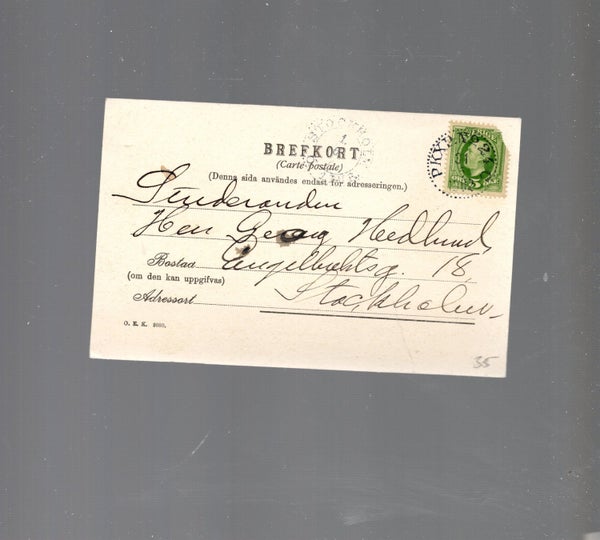 BREFKORT
(Carte postale)
(Denna sida användes endast för adresseringen.)
Studeranden
Herr Georg Hedlund
Bostad Engelbrektsg. 18
(om den kan uppgifvas)
Adressort Stockholm
O. E. K.
PKXP Nº 2
5
35